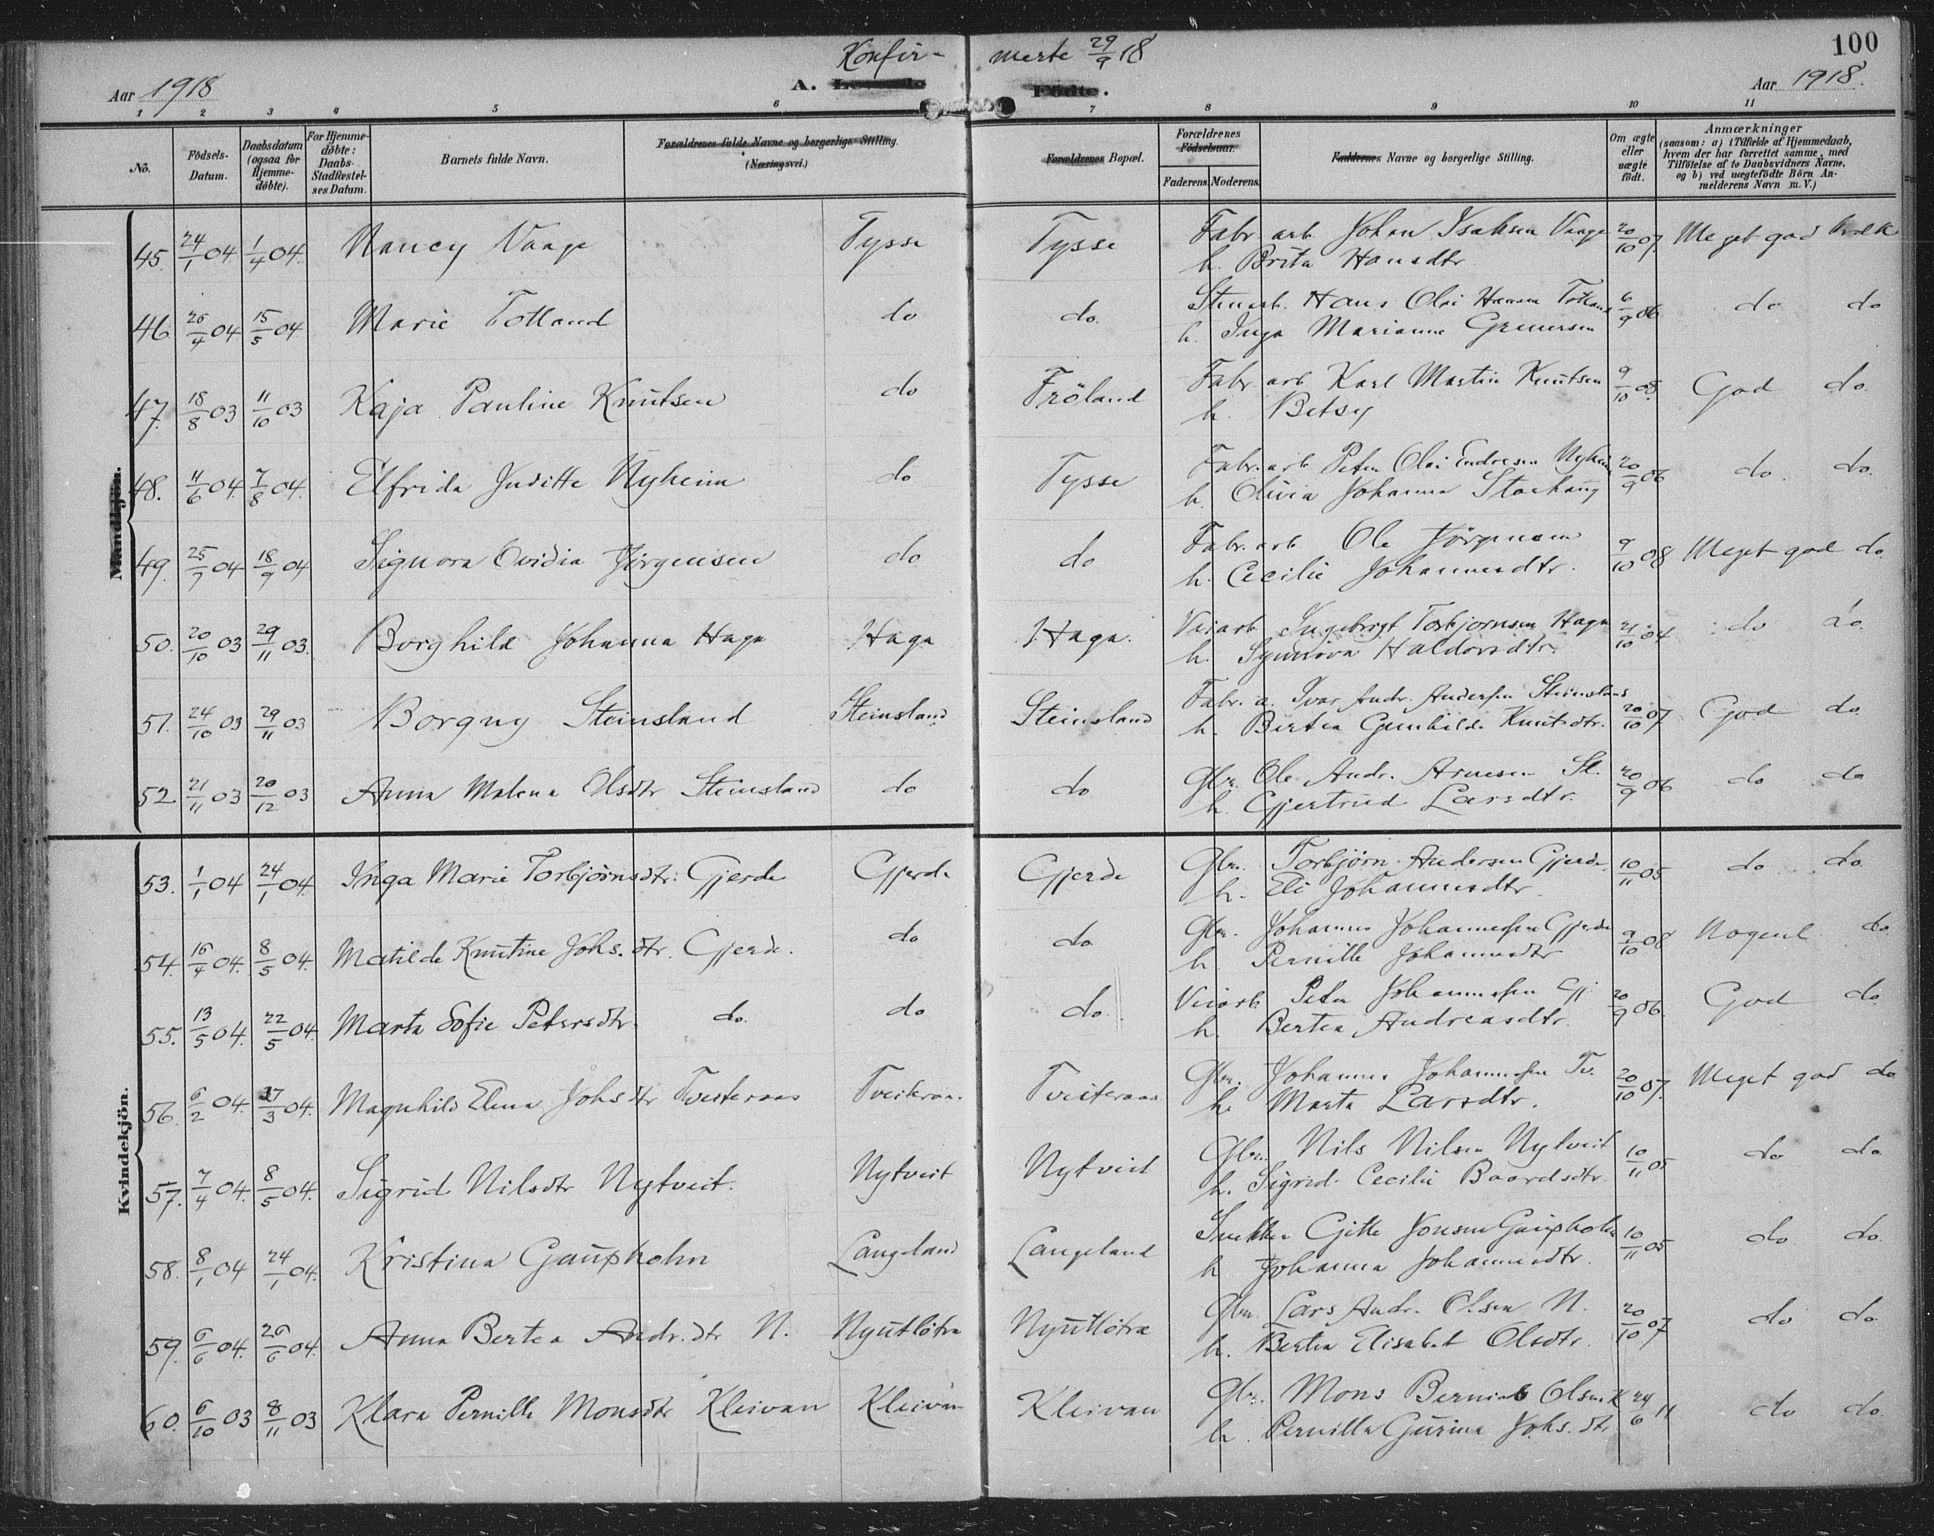 Konfir- merte 29/9 18
100
Aar 1918
A. Födte.
Aar 1918.
1 2 3 4 5 6 7 8 9 10 11
No.
Födsels-Datum.
Daabsdatum (ogsaa for Hjemmedöbte).
For Hjemmedöbte: Daabs-Stadfæstelses Datum.
Barnets fulde Navn.
Forældrenes fulde Navne og borgerlige Stilling. (Næringsvei.)
Forældrenes Bopæl.
Forældrenes Födselsaar.
Faderens Moderens
Faddernes Navne og borgerlige Stilling.
Om ægte eller uægte födt.
Anmærkninger (saasom: a) i Tilfælde af Hjemmedaab, hvem der har forrettet samme, med Tilföielse af to Daabsvidners Navne, og b) ved uægtefödte Börn Anmelderens Navn m. V.)
Mandkjön.
45. 24/1 04 1/4 04. Nancy Vaage Tysse Tysse Fabr. arb. Johan Isaksen Vaage 20/10 07. Meget god
h. Brita Hansdtr.
46. 04 15/5 04 Marie Totland do do. Stenarb. Hans Olai Hansen Totland 6/9 06 do do
h. Inga Marianne
47. 18/8 03 11/10 03 Kaja Pauline Knutsen do Fröland Fabr. arb Karl Martin Knutsen 9/10 05. God do.
h. Betsy
48. 11/6 04. 7/8 04. Elfrida Juditte Nyheim do Tysse Fabr. arb Peter Olai Endresen Nyheim 20/9 06 do. do.
h. Olivia Johanna Storhaug
49. 25/7 04 18/9 04 Signora Ovidia Jørgensen do do Fabr. arb Ole Jörgensen 9/10 08 Meget god do.
h. Cecilie Johannesdtr.
50. 20/10 03 29/11 03. Borghild Johanna Haga Haga Haga. Veiarb Ingebrigt Torbjørnsen Haga 21/10 04 do do.
h. Synnøva Haldorsdtr.
51. 24/10 03 29/11 03 Borgny Steinsland Steinsland Steinsland Fabr. a. Ivar Andr. Andersen Steinsland 20/10 07 God do.
h. Bertea Gunhilda Knutsdtr.
52 21/11 03 20/12 03 Anna Malena Olsdtr Steinsland do do Gbr. Ole Andr. Arnesen St. 20/9 06 do do
h. Gjertrud Larsdtr.
Kvindekjön.
53. 1/1 04 24/1 04. Inga Marie Torbjørnsdtr. Gjerde Gjerde Gjerde Gbr. Torbjørn Andersen Gjerde 10/11 05 do do.
h. Eli Johannesdtr.
54. 16/4 04. 8/5 04. Matilde Knutine Johs.dtr. Gjerde. do do Gbr. Johannes Johannessen Gjerde 9/10 08 Nogenl. do.
h. Pernille Johannesdtr
55. 13/5 04. 22/5 04. Marta Sofie Petersdtr. do. do do. Veiarb. Peter Johannessen Gj. 20/9 06. God do
h. Bertea Andreasdtr.
56. 6/2 04. 27/3 04. Magnhild Elena Johsdtr Tveiteraas Tveiteraas. Tveiteraas Gbr. Johannes Johannessen Tv. 20/10 07. Meget god do
h. Marta Larsdtr.
57. 7/4 04. 8/5 04. Sigrid Nilsdtr Nytveit. Nytveit Nytveit Gbr. Nils Nilsen Nytveit 10/11 05 do do.
h. Sigrid Cecilie Baardsdtr.
58. 8/1 04 24/1 04. Kristina Gaupholm Langeland Langeland Snekker Gitle Jonsen Gaupholm 10/11 05 do do.
h Johanna Johannesdtr.
59. 6/6 04. 26/6 04. Anna Bertea Andr.dtr N. Nyutlötra Nyutlötra Gbr. Lars Andr. Olsen N. 20/10 07 do do.
h. Bertea Elisabet Olsdtr.
60. 6/10 03 8/11 03 Klara Pernille Monsdtr Kleivan Kleivan Kleivan Gbr. Mons Olsen K 24/6 11 do do.
h. Pernilla Gurina Johs.dtr